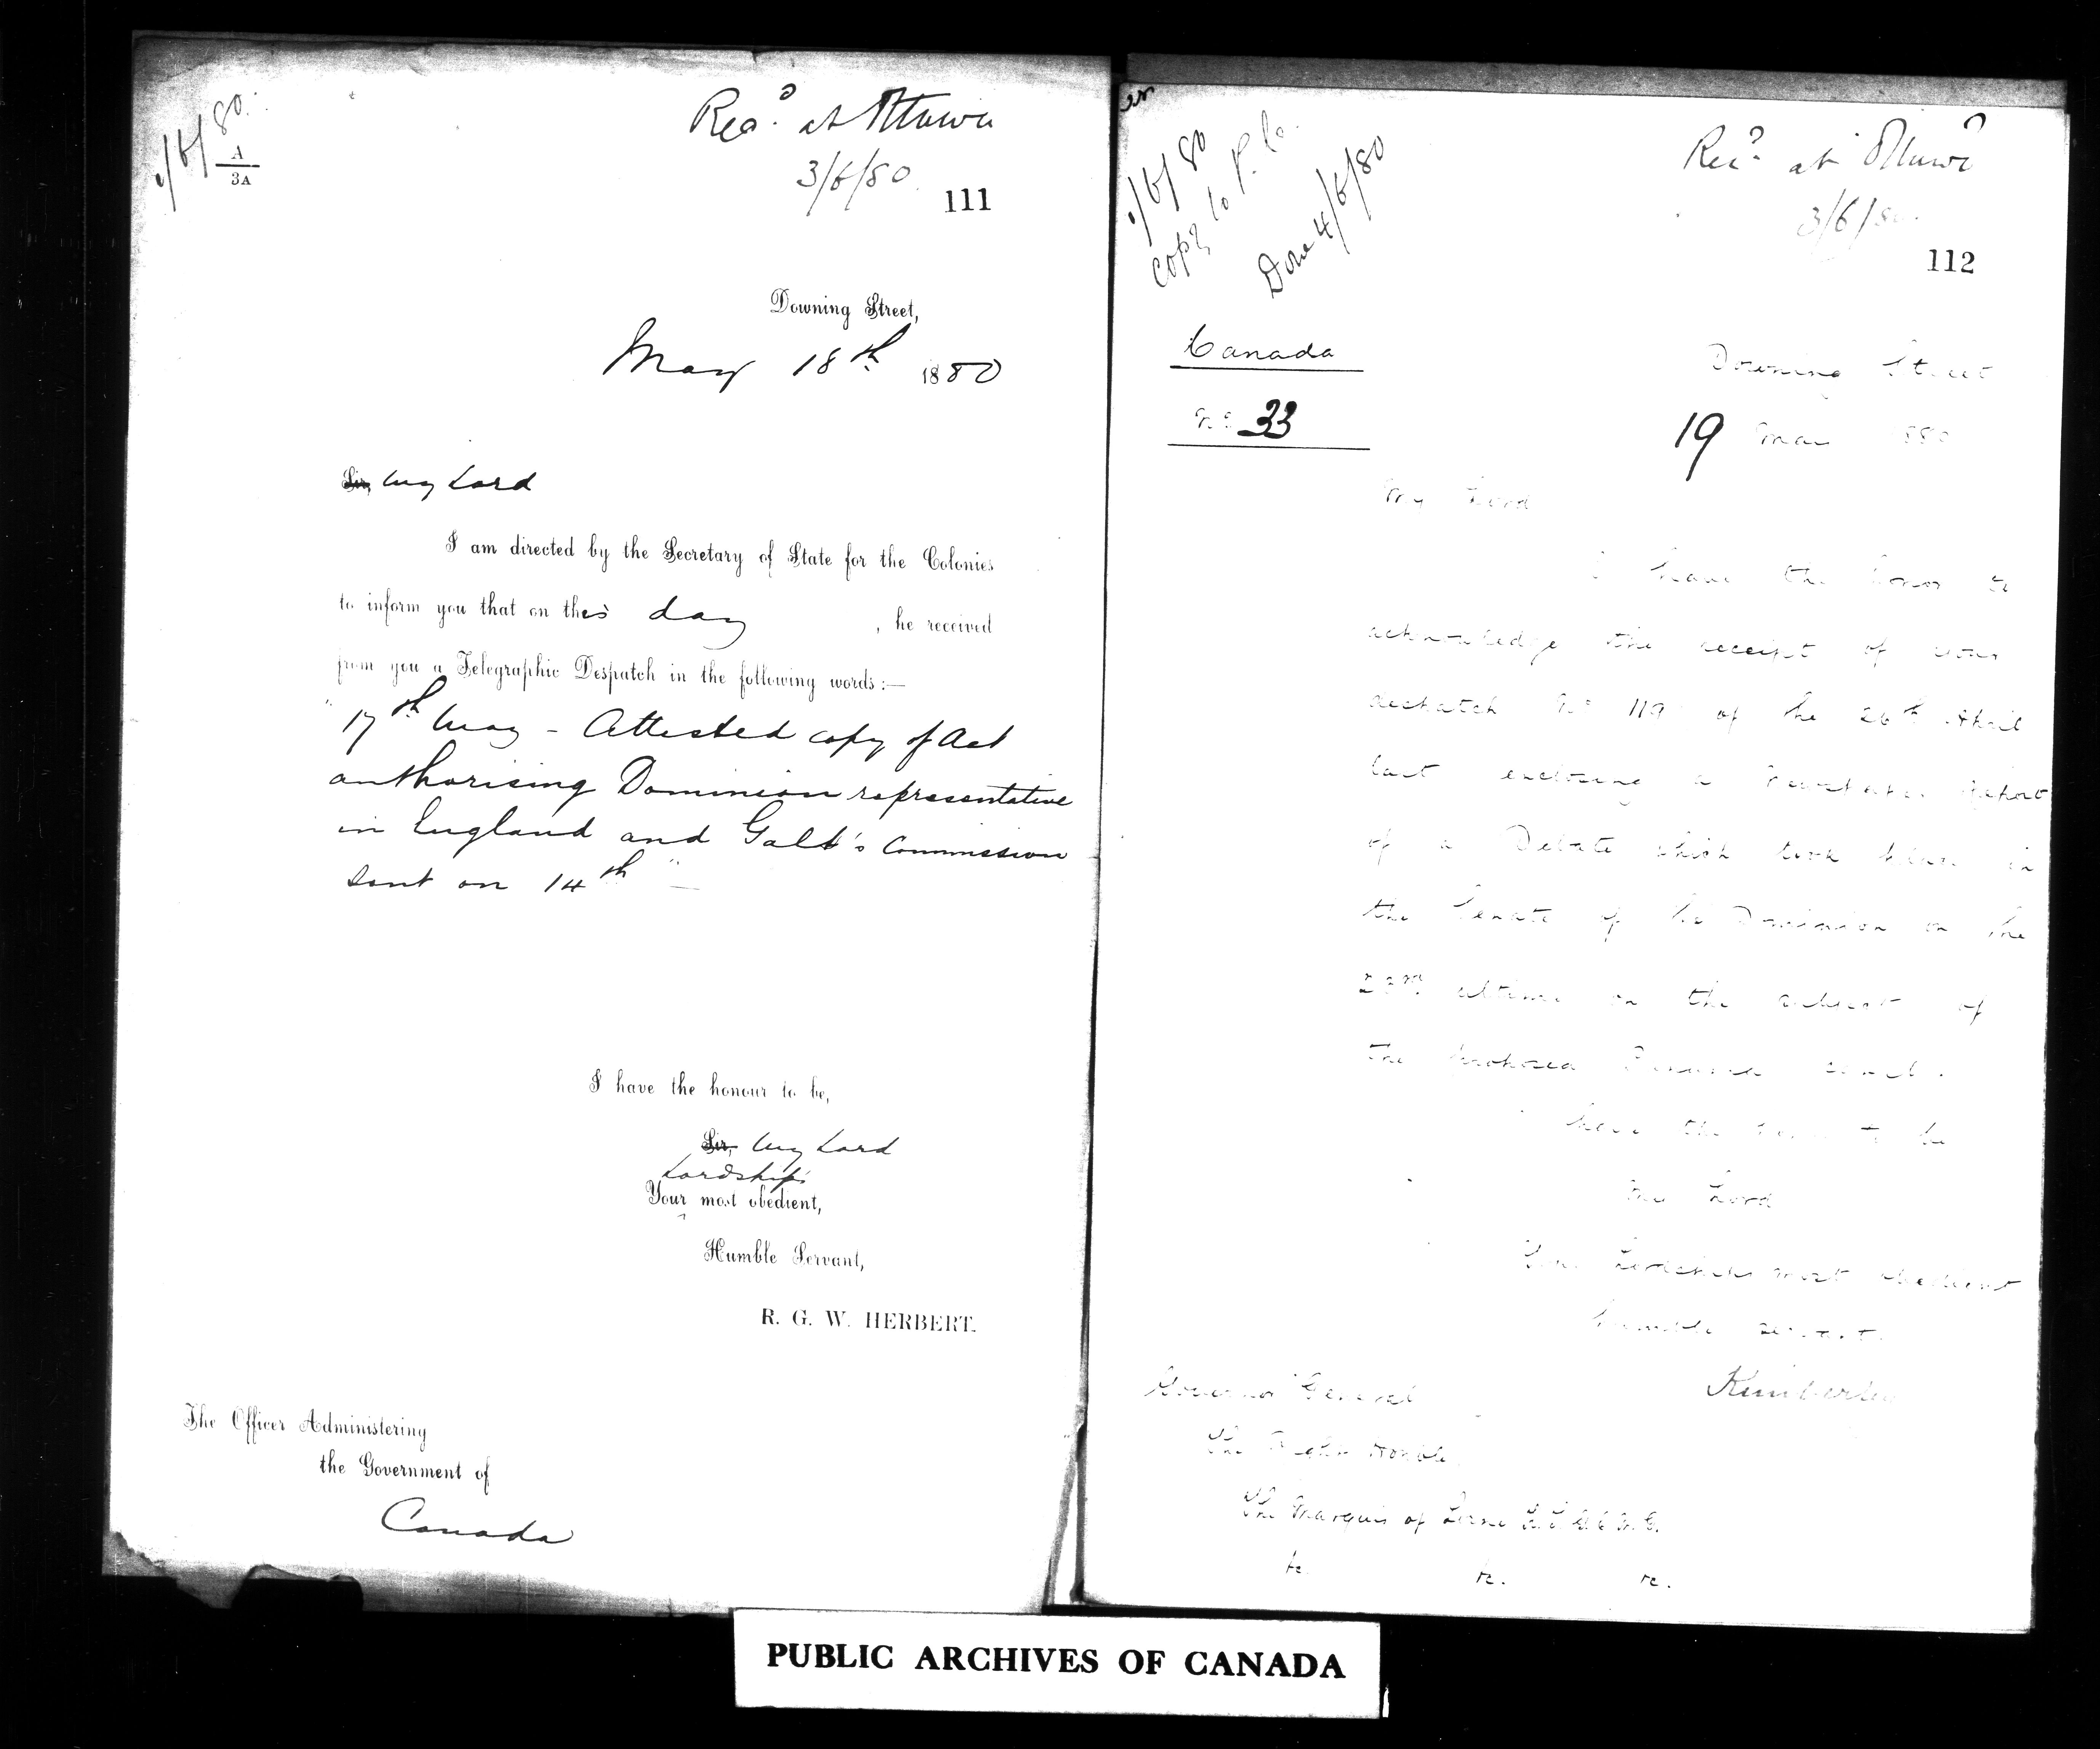 /6/80.
A
3A
Recd. at Ottawa
3/6/80.
111
Downing Street,
May 18th 1880
Sir, My Lord
I am directed by the Secretary of State for the Colonies
to inform you that on this day, he received
from you a Telegraphic Despatch in the following words:—
"17th May - Attested copy of Act
authorising Dominion representative
in England and Galt's Commission
sent on 14th" —
I have the honour to be,
Sir, My Lord
Lordship's
Your most obedient,
Humble Servant,
R. G. W. HERBERT.
The Officer Administering
the Government of
Canada
/6/80
Copy to P. Co.
Done 4/6/80
Recd. at Ottawa
3/6/80.
112
Canada
No. 33
Downing Street
19 May 1880
My Lord
I have the honor to
acknowledge the receipt of your
despatch No. 119 of the 26th April
last enclosing a Report
of a Debate which took place in
the Senate of the Dominion on the
ultimo on the subject of
the proposed
have the honor to be
My Lord
Your Lordship's most obedient
humble servant
Kimberley
Governor General
The Right Honble
The Marquis of Lorne K.T. G.C.M.G.
&c. &c. &c.
PUBLIC ARCHIVES OF CANADA